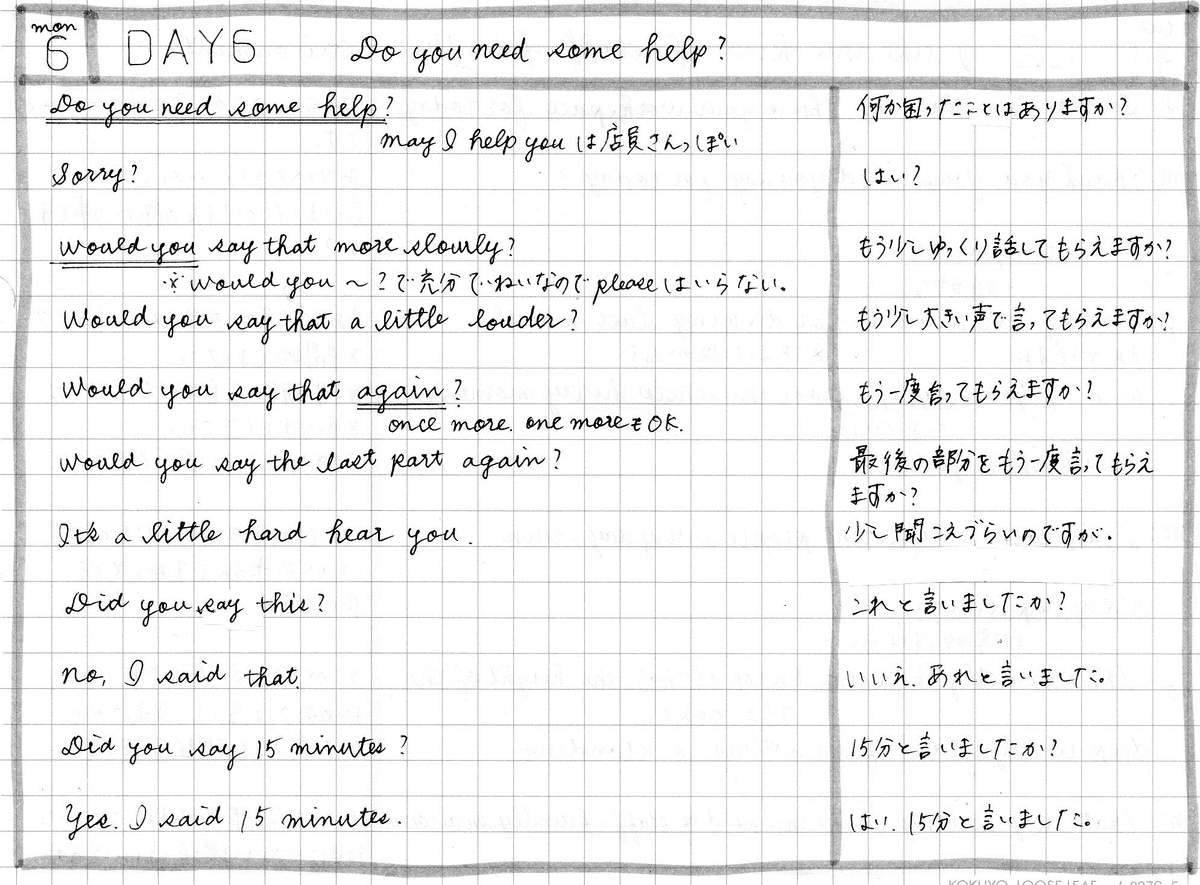 mon
6
DAY6
Do you need some help?
Do you need some help?
何か困ったことはありますか?
may I help you は店員さんっぽい
Sorry?
はい?
would you say that more slowly?
もう少しゆっくり話してもらえますか?
※would you ～?で充分ていねいなのでpleaseはいらない。
Would you say that a little louder?
もう少し大きい声で言ってもらえますか?
Would you say that again?
もう一度言ってもらえますか?
once more. one moreもOK.
would you say the last part again?
最後の部分をもう一度言ってもらえ
ますか?
It's a little hard hear you.
少し聞こえづらいのですが.
Did you say this?
これと言いましたか?
no, I said that.
いいえ.あれと言いました。
Did you say 15 minutes?
15分と言いましたか?
Yes. I said 15 minutes.
はい.15分と言いました。